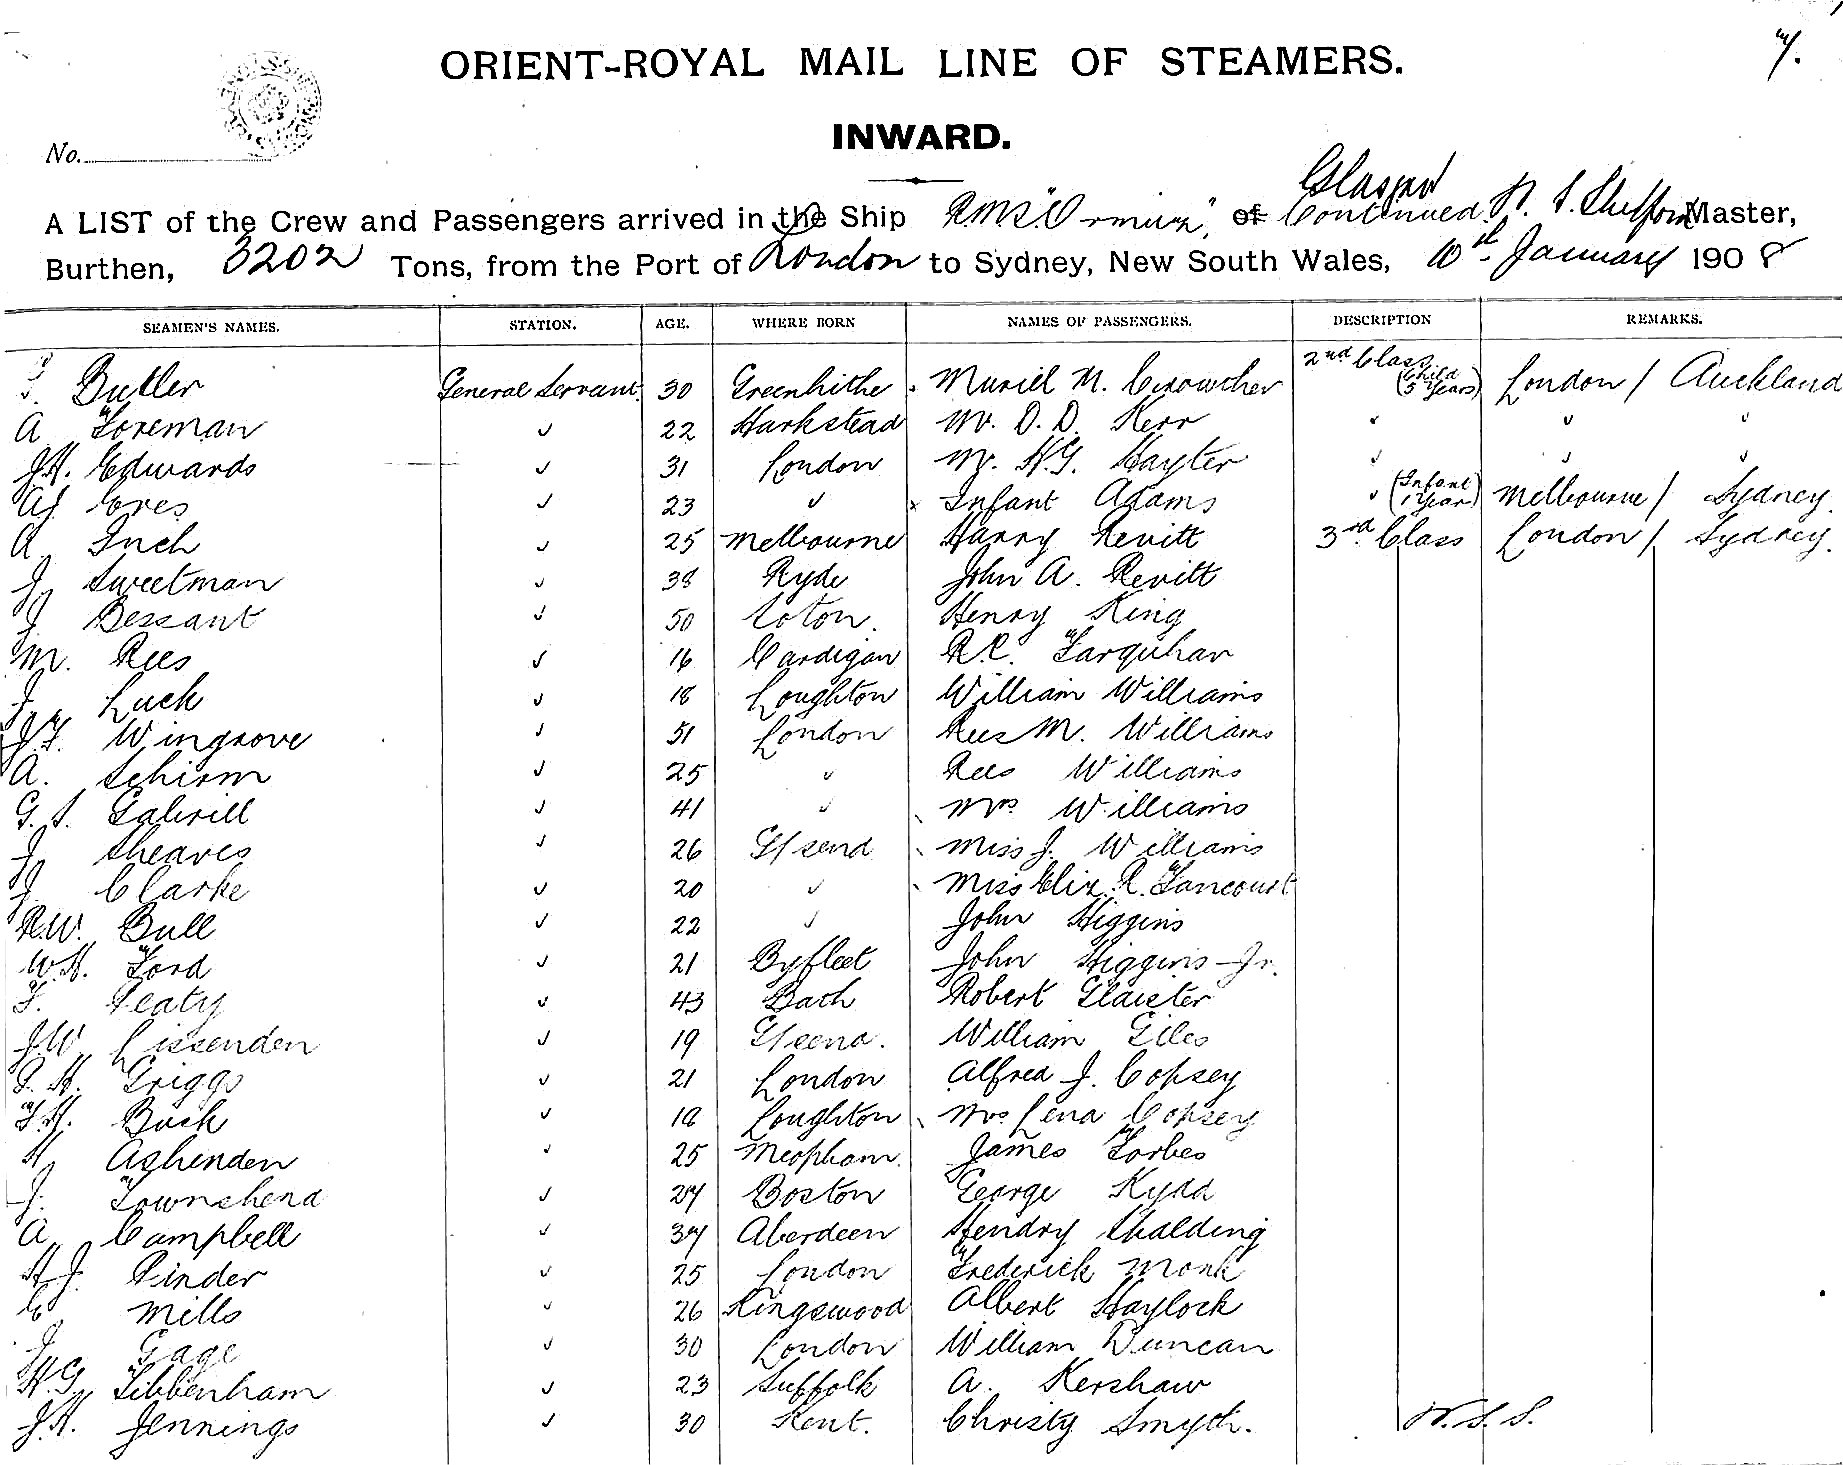 7.
ORIENT-ROYAL MAIL LINE OF STEAMERS.
INWARD.
No.
Glasgow
A LIST of the Crew and Passengers arrived in the Ship R.M.S. "Ormuz", of Continued Master,
Burthen, 3202 Tons, from the Port of London to Sydney, New South Wales, 10th January 1908
SEAMEN'S NAMES. STATION. AGE. WHERE BORN NAMES OF PASSENGERS. DESCRIPTION REMARKS.
Butler General Servant 30 Greenhithe Muriel M. Crowther 2nd Class (Child 5 Years) London / Auckland
A Foreman " 22 Harkstead Mr. D. D. Kerr " " "
J.H. Edwards " 31 London Mr. H.G. Hayter " " "
A.J. Eves " 23 " Infant Adams " (Infant 1 Year) Melbourne / Sydney.
A Inch " 25 Melbourne Harry Revitt 3rd Class London / Sydney.
J Sweetman " 38 Ryde John A. Revitt
J. Bessant " 50 Henry King
M. Rees " 16 Cardigan R.C. Farquhar
J. Luck " 18 Loughton William Williams
J.F. Wingrove " 51 London Rees M. Williams
A. Schirm " 25 " Rees Williams
G. S. Gabrill " 41 " Mrs Williams
J Sheaves " 26 G/send Miss J. Williams
J. Clarke " 20 " Miss Eliz. R. Fancourt
R.W. Bull " 22 " John Higgins
W.H. Ford " 21 Byfleet John Higgins Jr.
F. Peaty " 43 Bath Robert Glaister
J.W. Lissenden " 19 G/send. William Giles
G. H. Griggs " 21 London Alfred J. Copsey
F.H. Buck " 18 Loughton Mrs Lena Copsey
H Ashenden " 25 Meopham. James Forbes
J. Townshend " 27 Boston George Kydd
A Campbell " 37 Aberdeen Hendry Spalding
H J. Pinder " 25 London Frederick Monk
C. Mills " 26 Kingswood Albert Haylock
J Gage " 30 London William Duncan
H.G. Tibbenham " 23 Suffolk A. Kershaw
J.H. Jennings " 30 Kent. Christy Smyth.